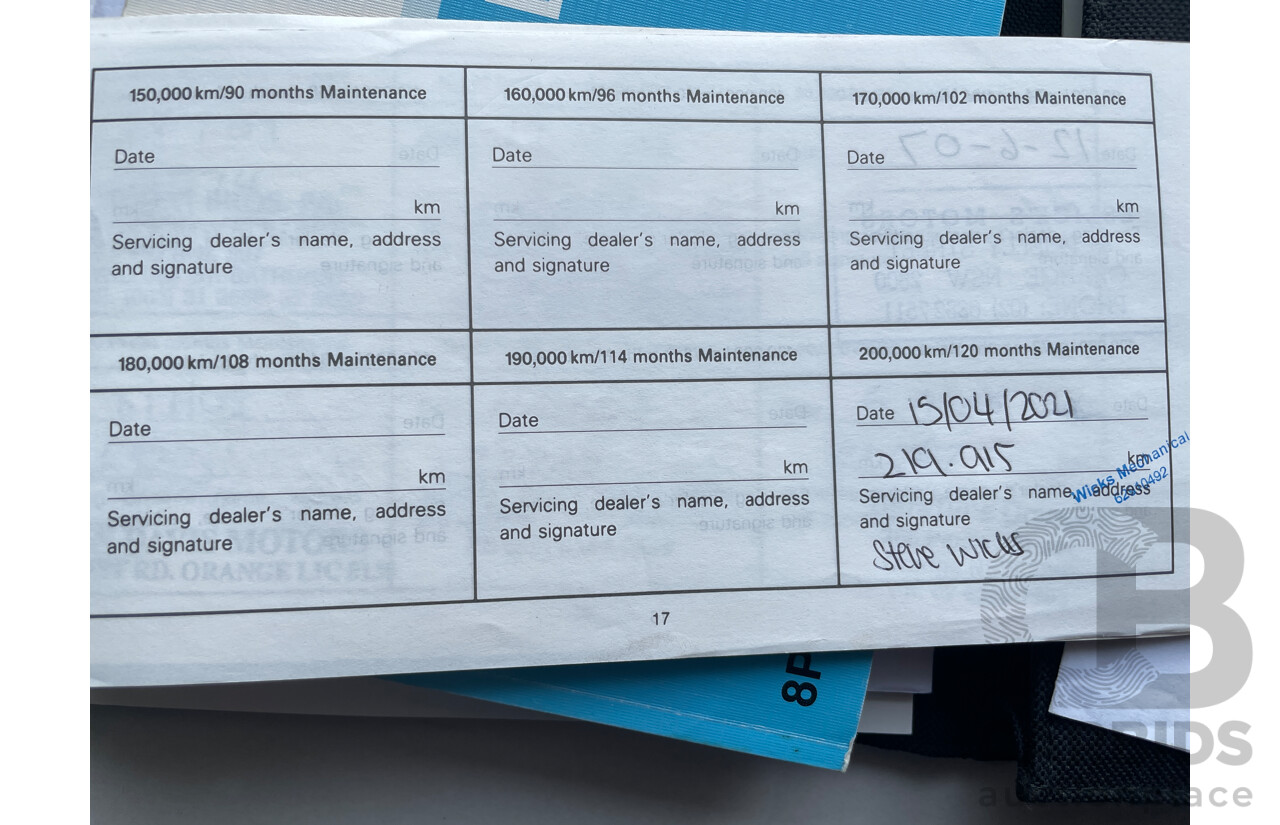 150,000 km/90 months Maintenance
160,000 km/96 months Maintenance
170,000 km/102 months Maintenance
Date
Date
Date
km
km
km
Servicing dealer's name, address
and signature
Servicing dealer's name, address
and signature
Servicing dealer's name, address
and signature
180,000 km/108 months Maintenance
190,000 km/114 months Maintenance
200,000 km/120 months Maintenance
Date
Date
Date 15/04/2021
km
km
219.915 km
Servicing dealer's name, address
and signature
Servicing dealer's name, address
and signature
Servicing dealer's name, address
and signature
Wicks Mechanical
Steve Wicks
17
8P
BIDS